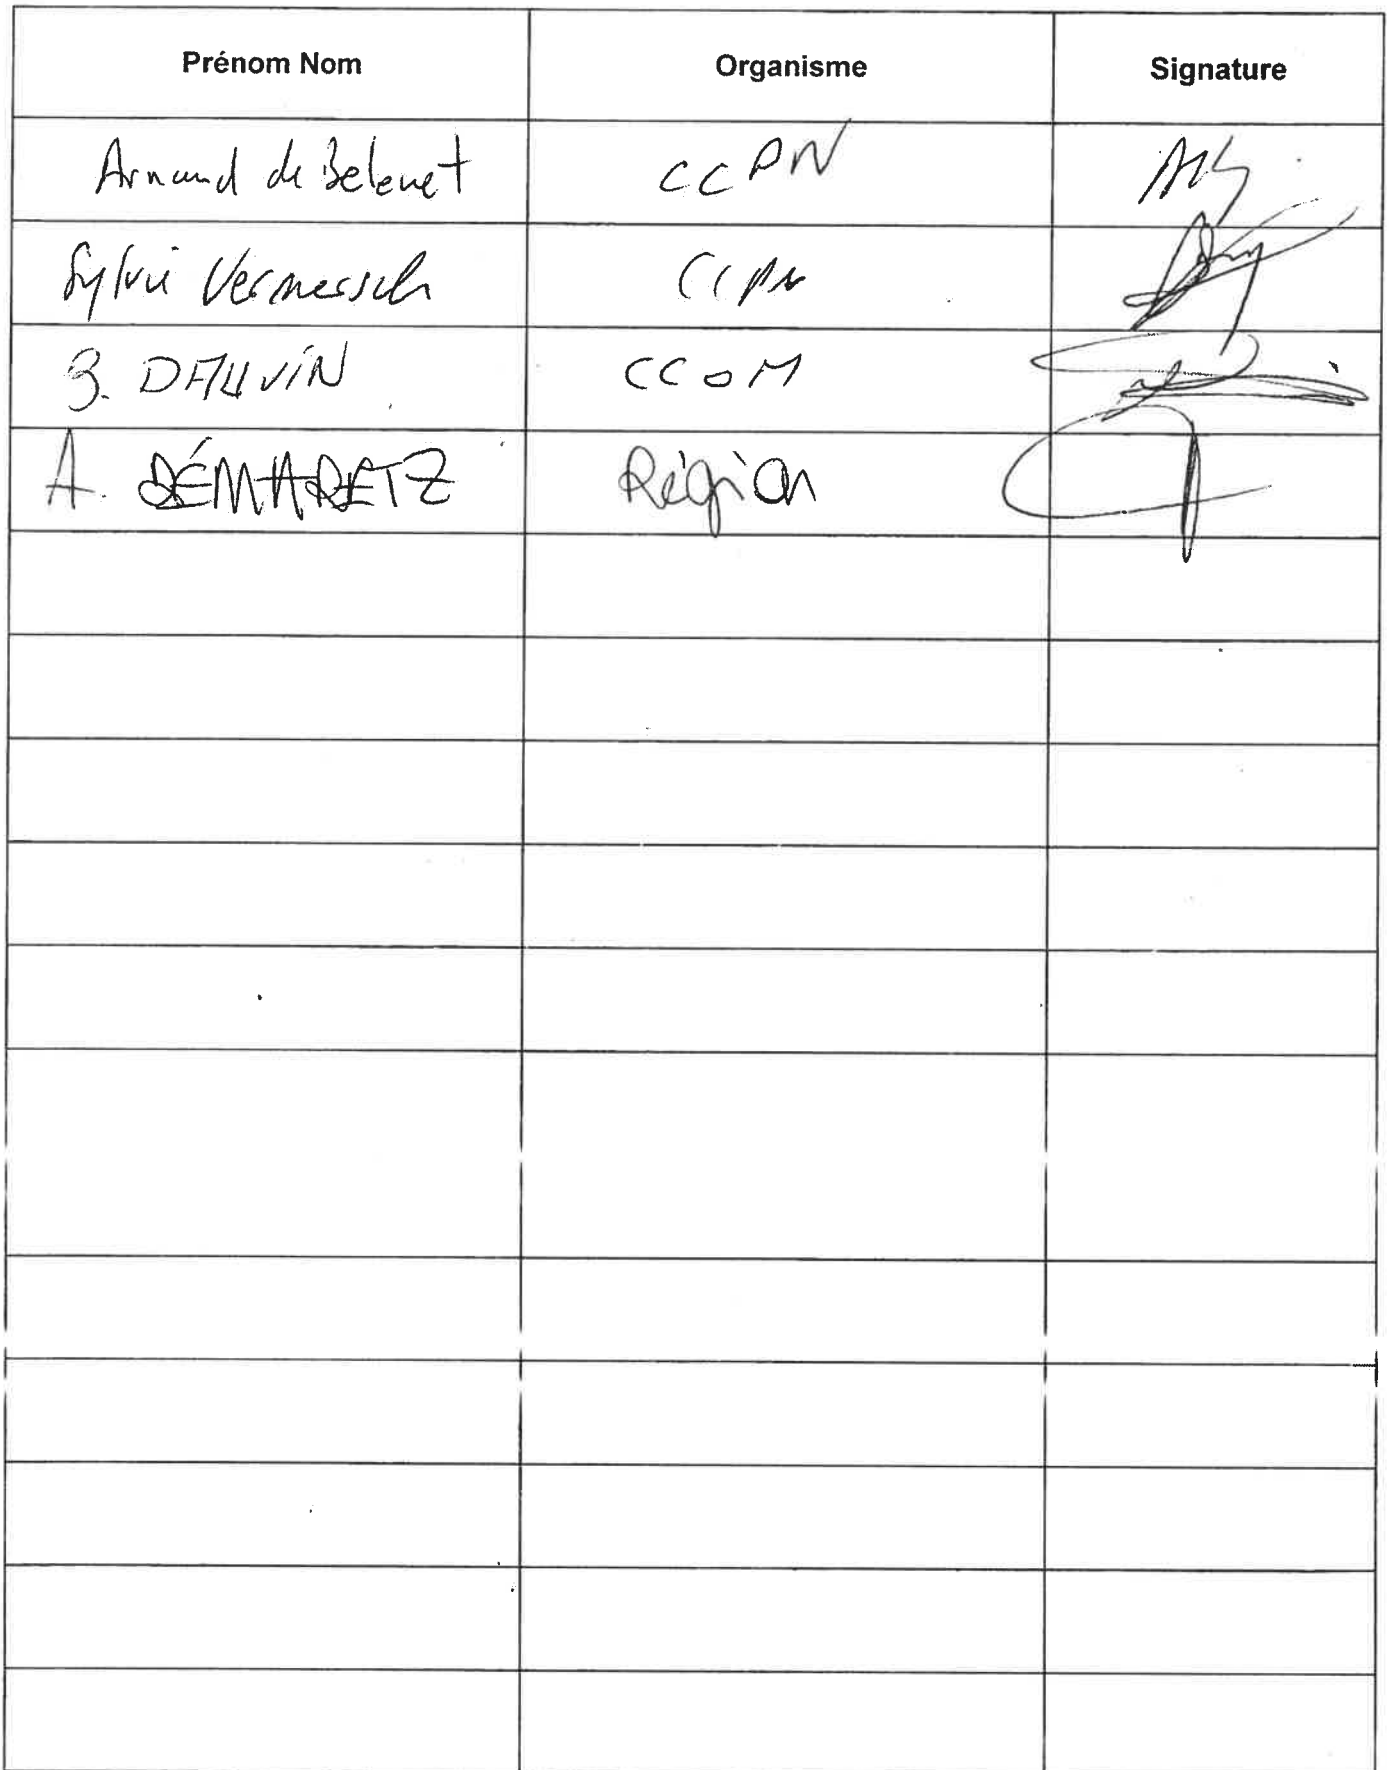 Prénom Nom Organisme Signature
Arnaud de Belenet CCPN
Sylvie Vermersch CCPN
DAUVIN CCOM
A. DÉMARETZ Région